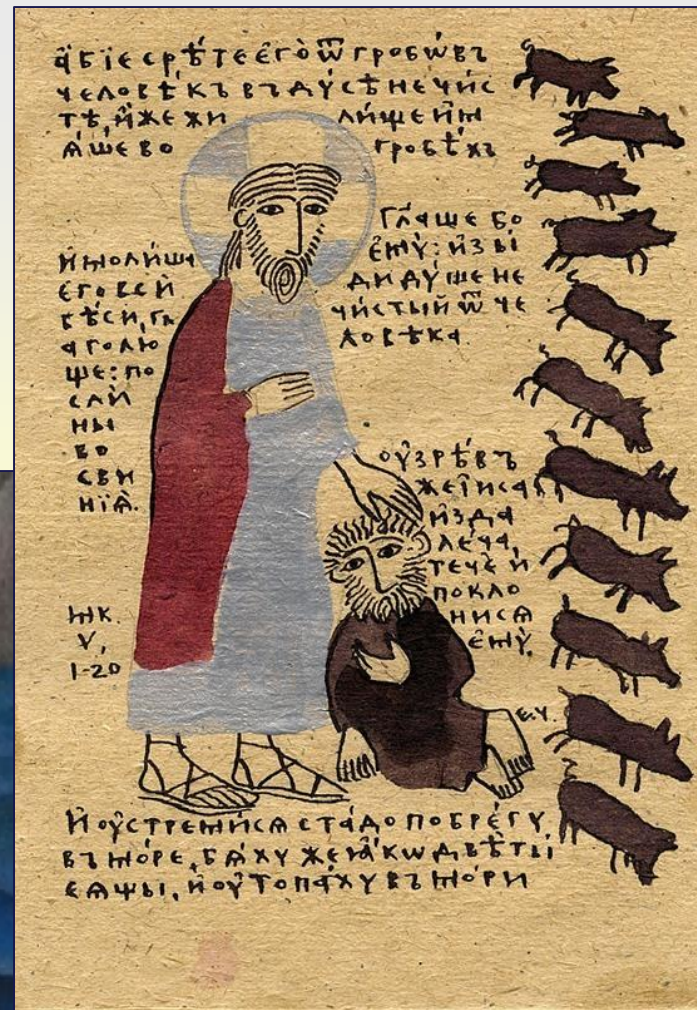 а҆бїе срѣ́те є҆го̀ ѿ гробѡ́въ
человѣ́къ въ ду́сѣ нечис
тѣ, и҆́же жи ли́ще и҆м
ѧ́ше во гробѣ́хъ
гл҃аше бо
є҆му̀: и҆зы
ди ду́ше не
чи́стый ѿ че
ловѣ́ка.
и҆ моли́ша
его всѝ
бѣси, гл
аголю
ще: по
слѝ
ны
во
сви
нїѧ̀.
оу҆зрѣ́въ
же і҆иса
и҆зда
ле́ча,
течѐ и҆
покло
нисѧ
є҆му̀.
мк.
V,
1-20
е.ч.
И҆ оу҆стреми́сѧ ста́до по бре́гу
въ мо́ре, бѧ́ху же ꙗ҆́кѡ двѣ̀ ты
сѧщы, и҆ оу҆топа́ху въ мо́ри